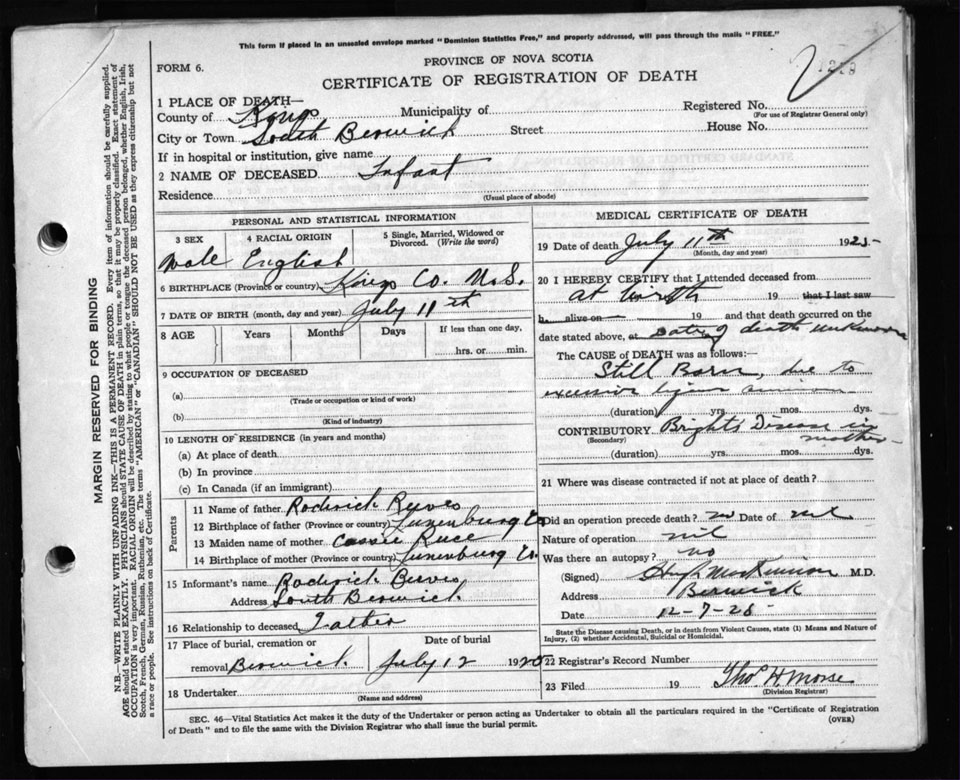 This form if placed in an unsealed envelope marked "Dominion Statistics Free," and properly addressed, will pass through the mails "FREE."
PROVINCE OF NOVA SCOTIA
FORM 6.
CERTIFICATE OF REGISTRATION OF DEATH
1 PLACE OF DEATH—
County of Kings Municipality of Registered No.
(For use of Registrar General only)
City or Town South Berwick Street House No.
If in hospital or institution, give name
2 NAME OF DECEASED Infant
Residence
(Usual place of abode)
PERSONAL AND STATISTICAL INFORMATION
3 SEX 4 RACIAL ORIGIN 5 Single, Married, Widowed or Divorced. (Write the word)
Male English
6 BIRTHPLACE (Province or country) Kings Co. N.S.
7 DATE OF BIRTH (month, day and year) July 11th
8 AGE Years Months Days If less than one day,
hrs. or min.
9 OCCUPATION OF DECEASED
(a)
(Trade or occupation or kind of work)
(b)
(Kind of industry)
10 LENGTH OF RESIDENCE (in years and months)
(a) At place of death
(b) In province
(c) In Canada (if an immigrant)
Parents
11 Name of father Roderick Reeves
12 Birthplace of father (Province or country) Lunenburg Co.
13 Maiden name of mother Cassie
14 Birthplace of mother (Province or country) Lunenburg Co.
15 Informant's name Roderick Reeves
Address South Berwick
16 Relationship to deceased Father
17 Place of burial, cremation or Date of burial
removal Berwick July 12 192
18 Undertaker
(Name and address)
MEDICAL CERTIFICATE OF DEATH
19 Date of death July 11th 1925
(Month, day and year)
20 I HEREBY CERTIFY that I attended deceased from
at birth 19 that I last saw
h alive on 19 and that death occurred on the
date stated above, at Date of death unknown
The CAUSE of DEATH was as follows:
Still Born, due to
(duration) yrs. mos. dys.
CONTRIBUTORY Brights Disease in
(Secondary) mother
(duration) yrs. mos. dys.
21 Where was disease contracted if not at place of death?
Did an operation precede death? no Date of nil
Nature of operation nil
Was there an autopsy? no
(Signed) Hugh MacKinnon M.D.
Address Berwick
Date 12-7-25
State the Disease causing Death, or in death from Violent Causes, state (1) Means and Nature of
Injury, (2) whether Accidental, Suicidal or Homicidal.
22 Registrar's Record Number
23 Filed 19 Thos H. Morse
(Division Registrar)
SEC. 46—Vital Statistics Act makes it the duty of the Undertaker or person acting as Undertaker to obtain all the particulars required in the "Certificate of Registration
of Death" and to file the same with the Division Registrar who shall issue the burial permit.
(OVER)
MARGIN RESERVED FOR BINDING
N.B.—WRITE PLAINLY WITH UNFADING INK—THIS IS A PERMANENT RECORD. Every item of information should be carefully supplied.
AGE should be stated EXACTLY. PHYSICIANS should STATE CAUSE OF DEATH in plain terms, so that it may be properly classified. Exact statement of
OCCUPATION is very important. RACIAL ORIGIN will be described by stating to what people or tongue the deceased person belonged, whether English, Irish,
Scotch, French, German, Russian, Ruthenian, etc. The terms "AMERICAN" or "CANADIAN" SHOULD NOT BE USED as they express citizenship but not
a race or people. See instructions on back of Certificate.